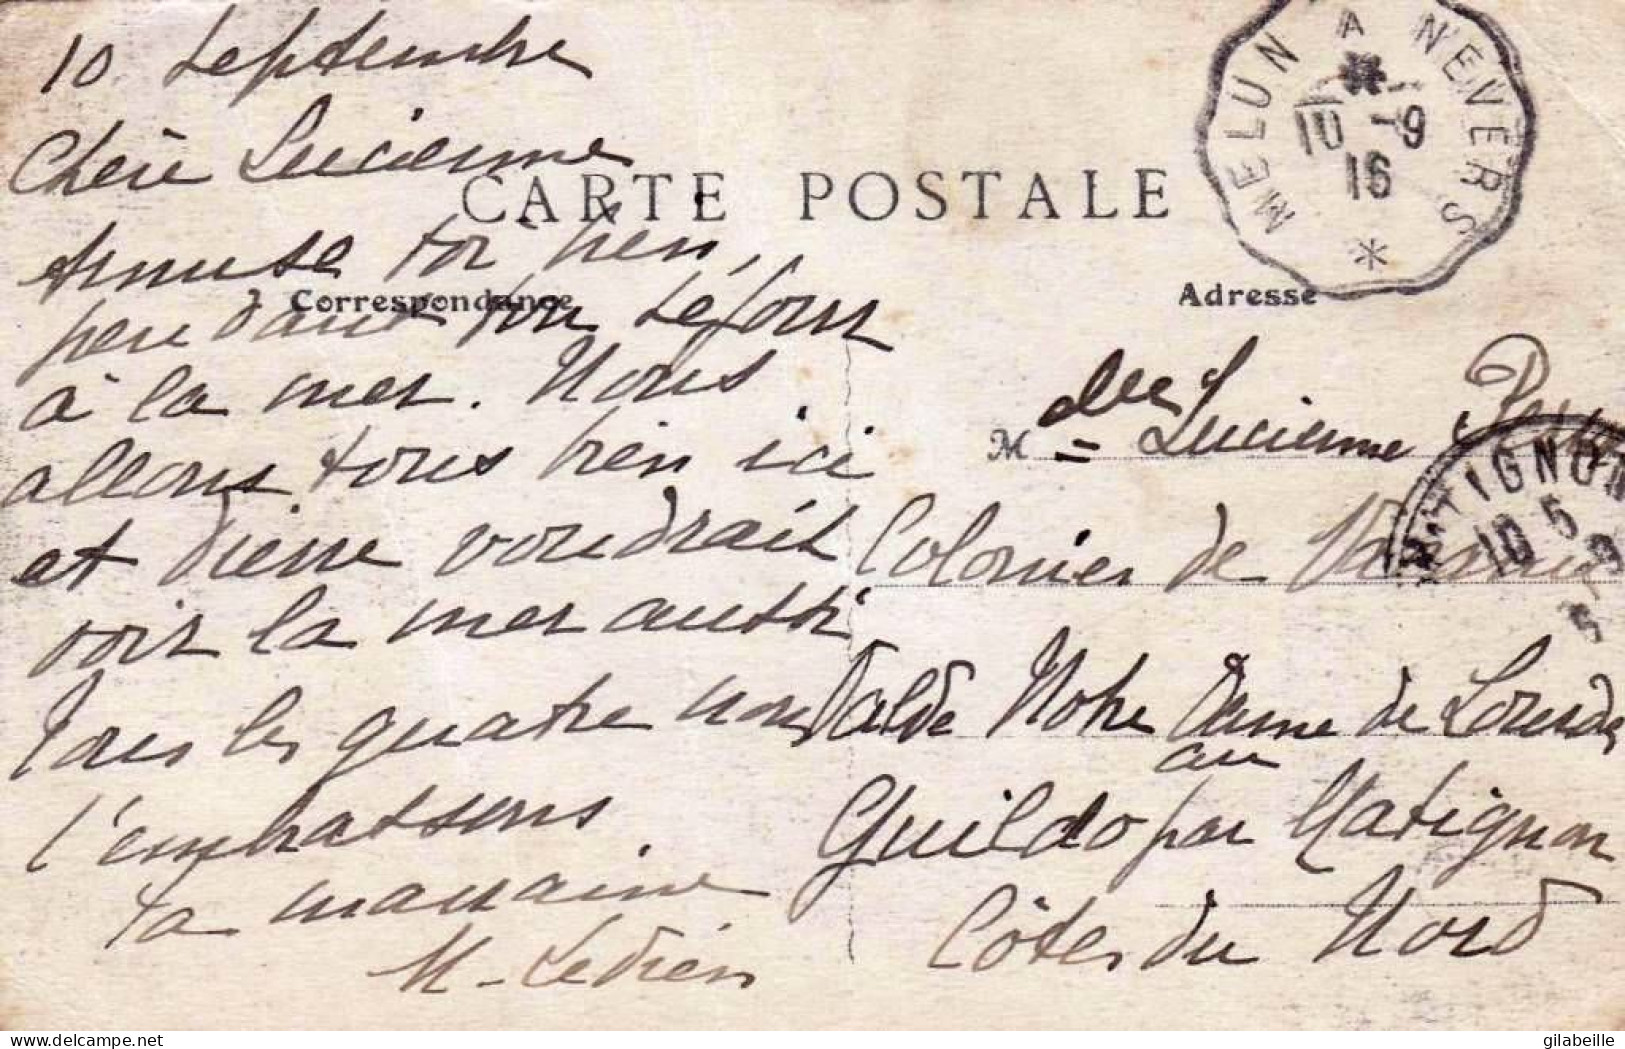 10 Septembre
Chère Lucienne
CARTE POSTALE
Amuse toi bien,
Correspondance
pendant ton séjour
à la mer. Nous
allons tous bien ici
et Pierre voudrait
voir la mer aussi
Tous les quatre nous
t'embrassons
ta marraine
M. Ledien
MELUN A NEVERS
10 -9
16
*
Adresse
M elle Lucienne
MATIGNON
10 5
Colonies de
Val de Notre Dame de Lourdes
au
Guildo par Matignon
Côtes du Nord
delcampe.net
gilabeille